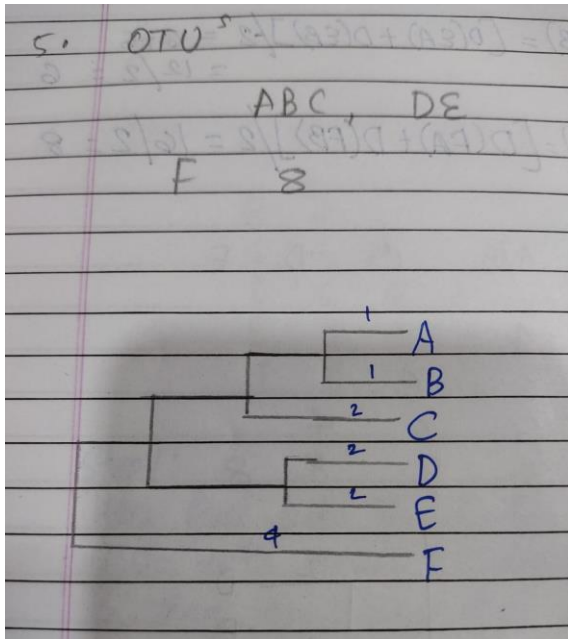 5. OTUs
ABC, DE
F 8
1
A
1
B
2
C
2
D
2
E
4
F